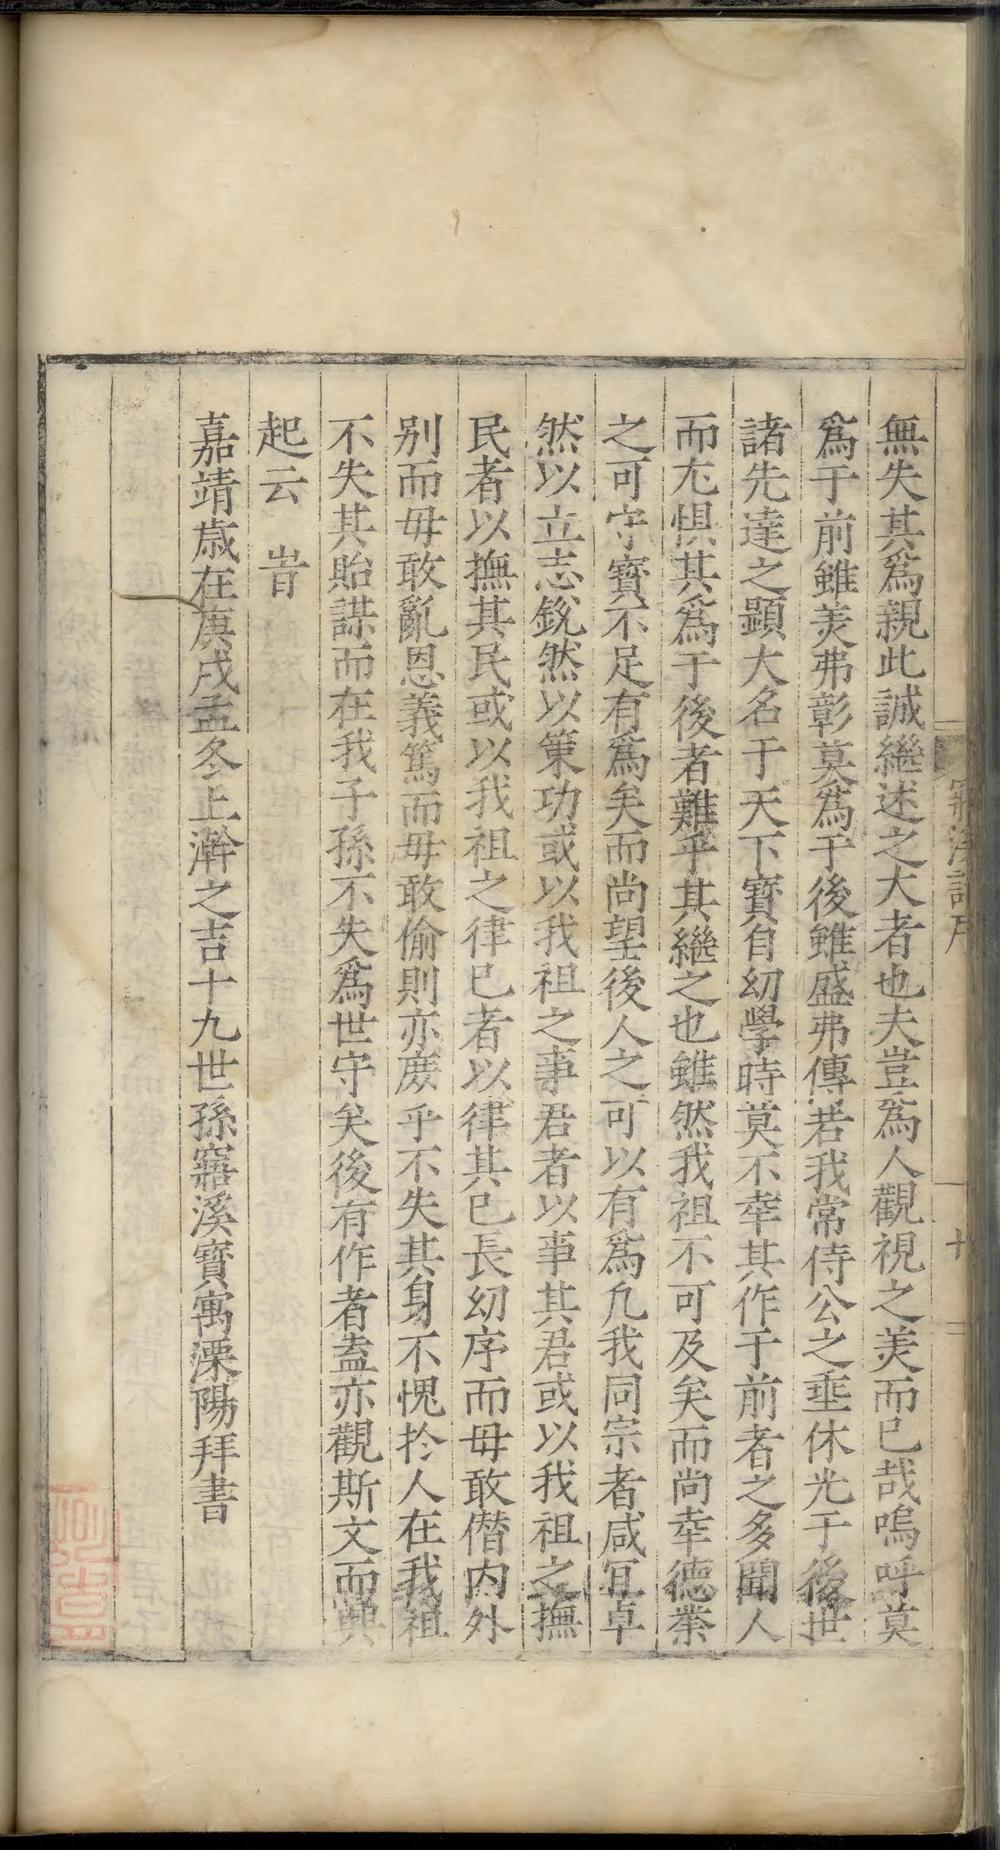 無失其爲親此誠繼述之大者也夫豈爲人觀視之美而已哉嗚呼莫
爲于前雖美弗彰莫爲于後雖盛弗傳若我常侍公之垂休光于後世
諸先達之顯大名于天下寳自幼學時莫不幸其作于前者之多聞人
而尢惧其爲于後者難乎其繼之也雖然我祖不可及矣而尚幸德業
之可守寳不足有爲矣而尚望後人之可以有爲凢我同宗者咸冝卓
然以立志銳然以策功或以我祖之事君者以事其君或以我祖之撫
民者以撫其民或以我祖之律已者以律其已長幼序而毋敢僭内外
别而毋敢亂恩義篤而毋敢偷則亦庻乎不失其身不愧扵人在我祖
不失其貽謀而在我子孫不失爲世守矣後有作者盖亦觀斯文而興
起云 旹
嘉靖歲在庚戌孟冬上澣之吉十九世孫寤溪寳寓溧陽拜書